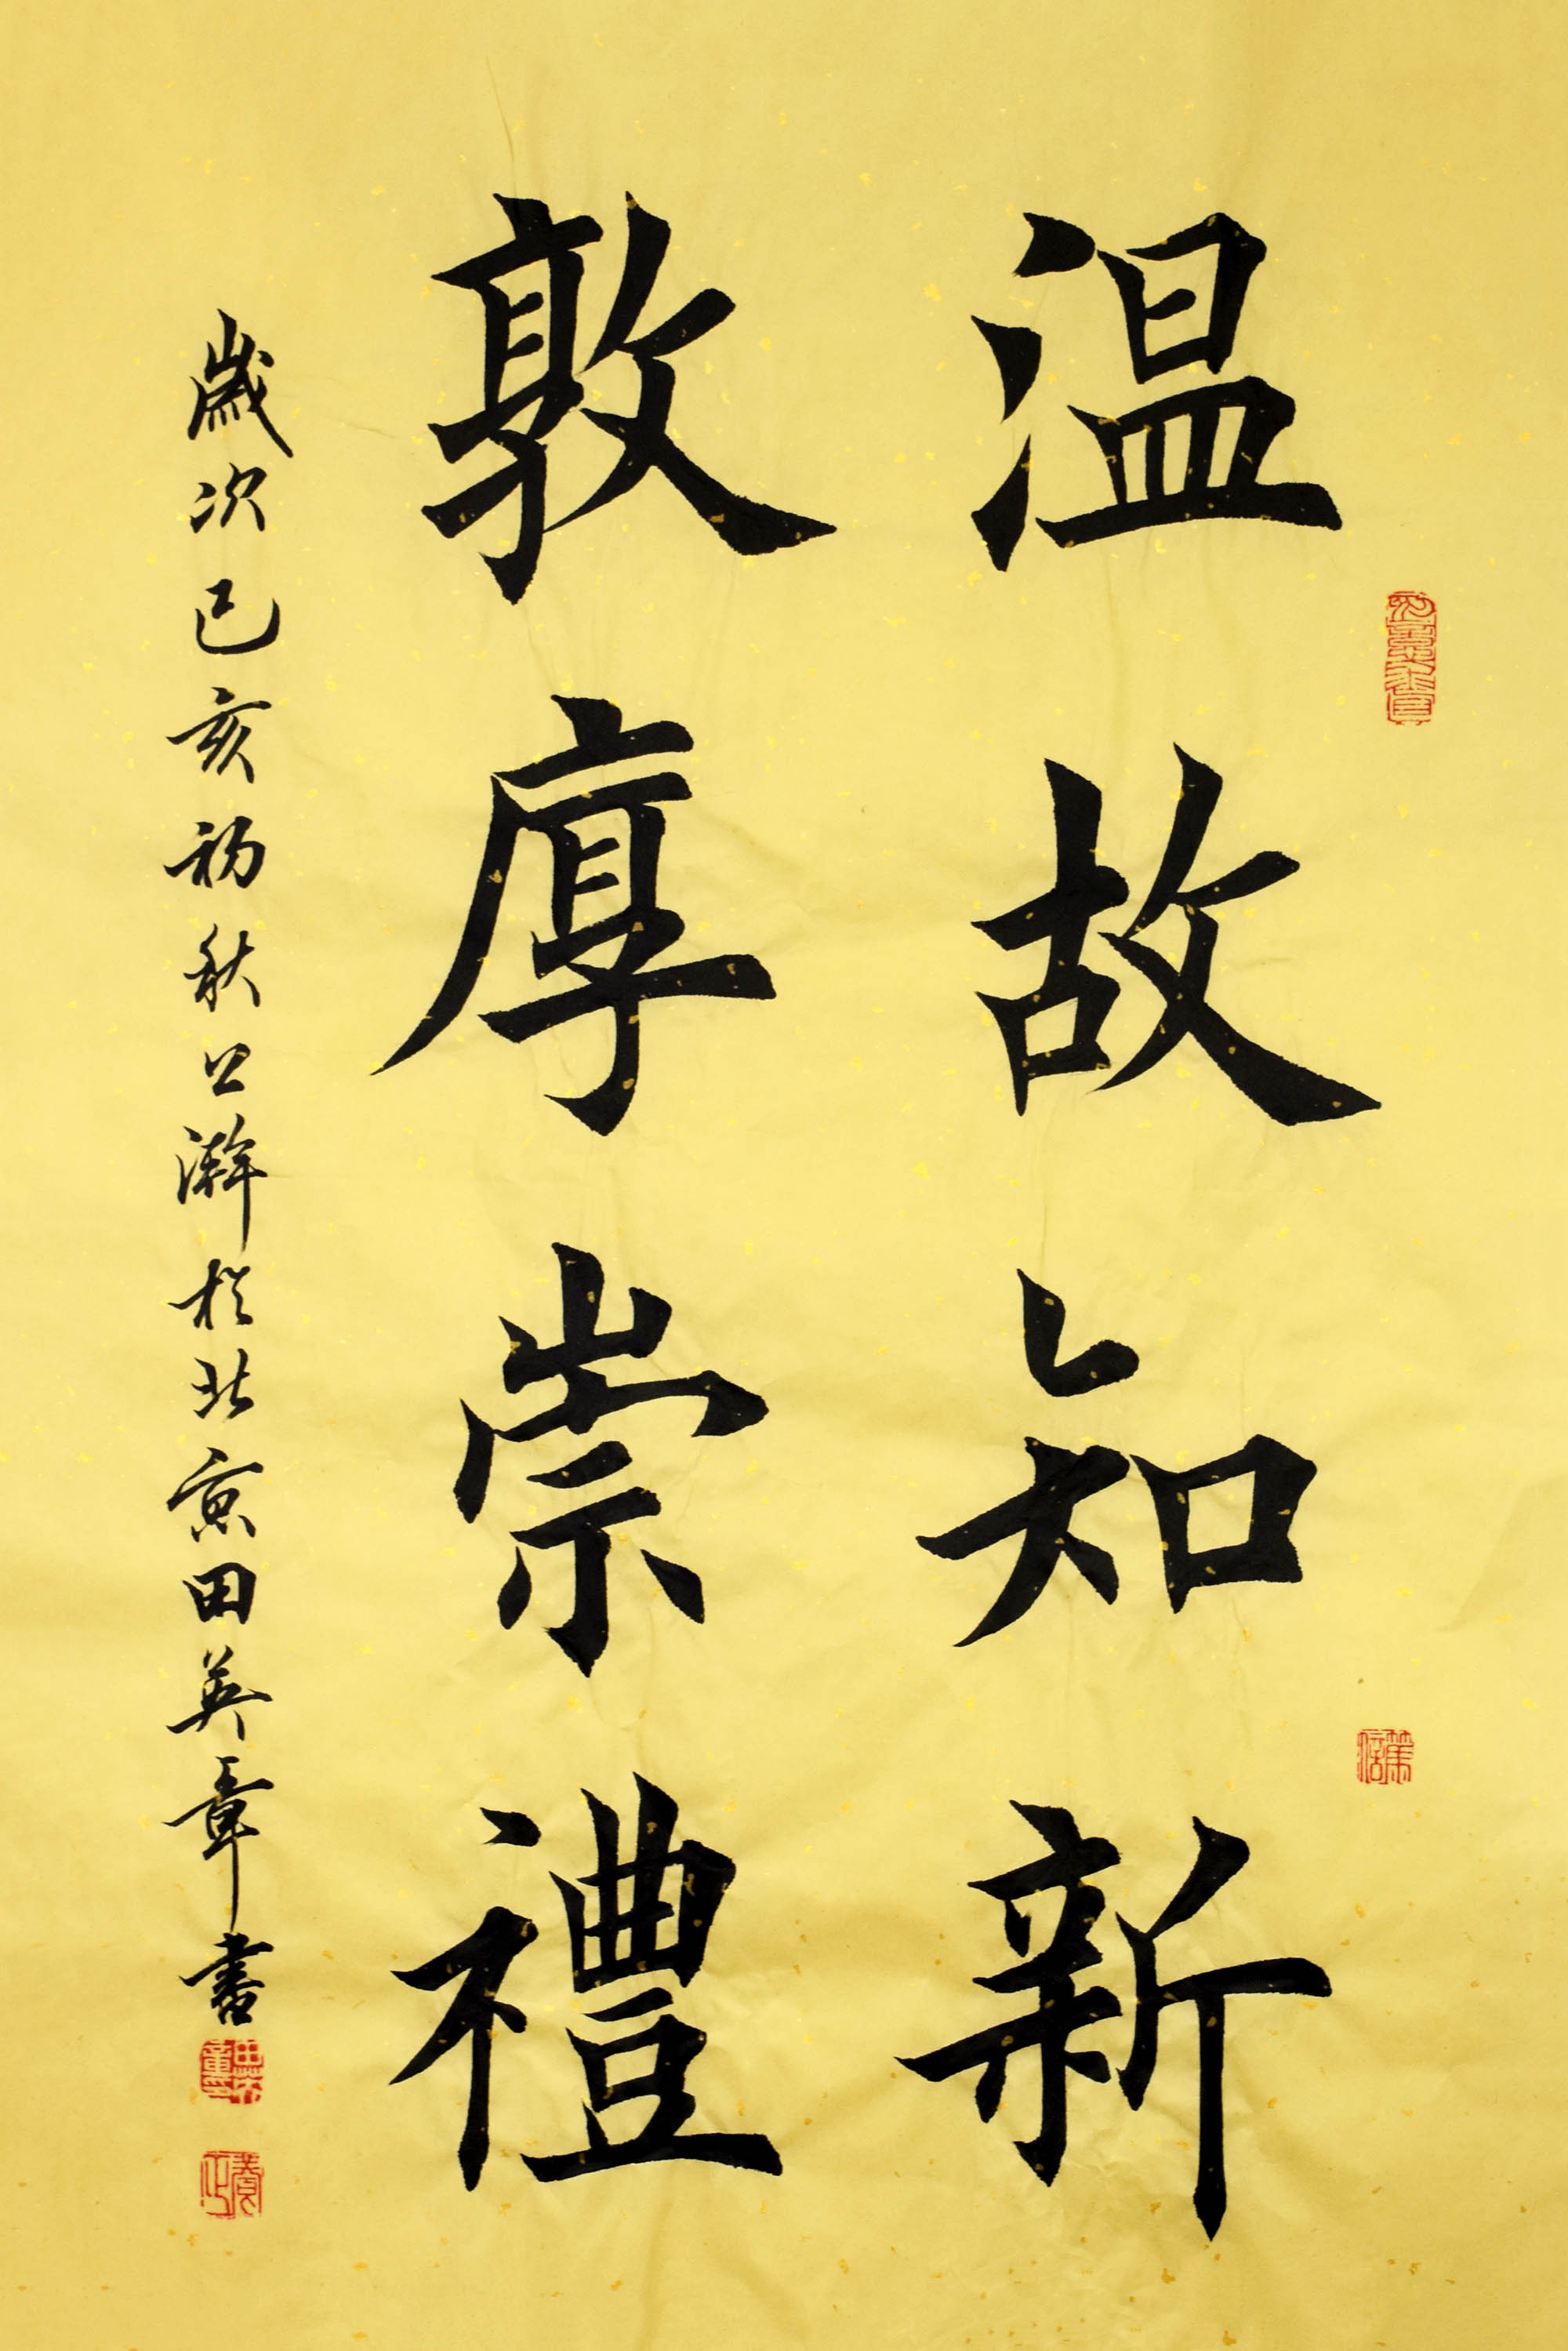 温故知新
敦厚崇禮
歲次己亥初秋上澣於北京田英章書